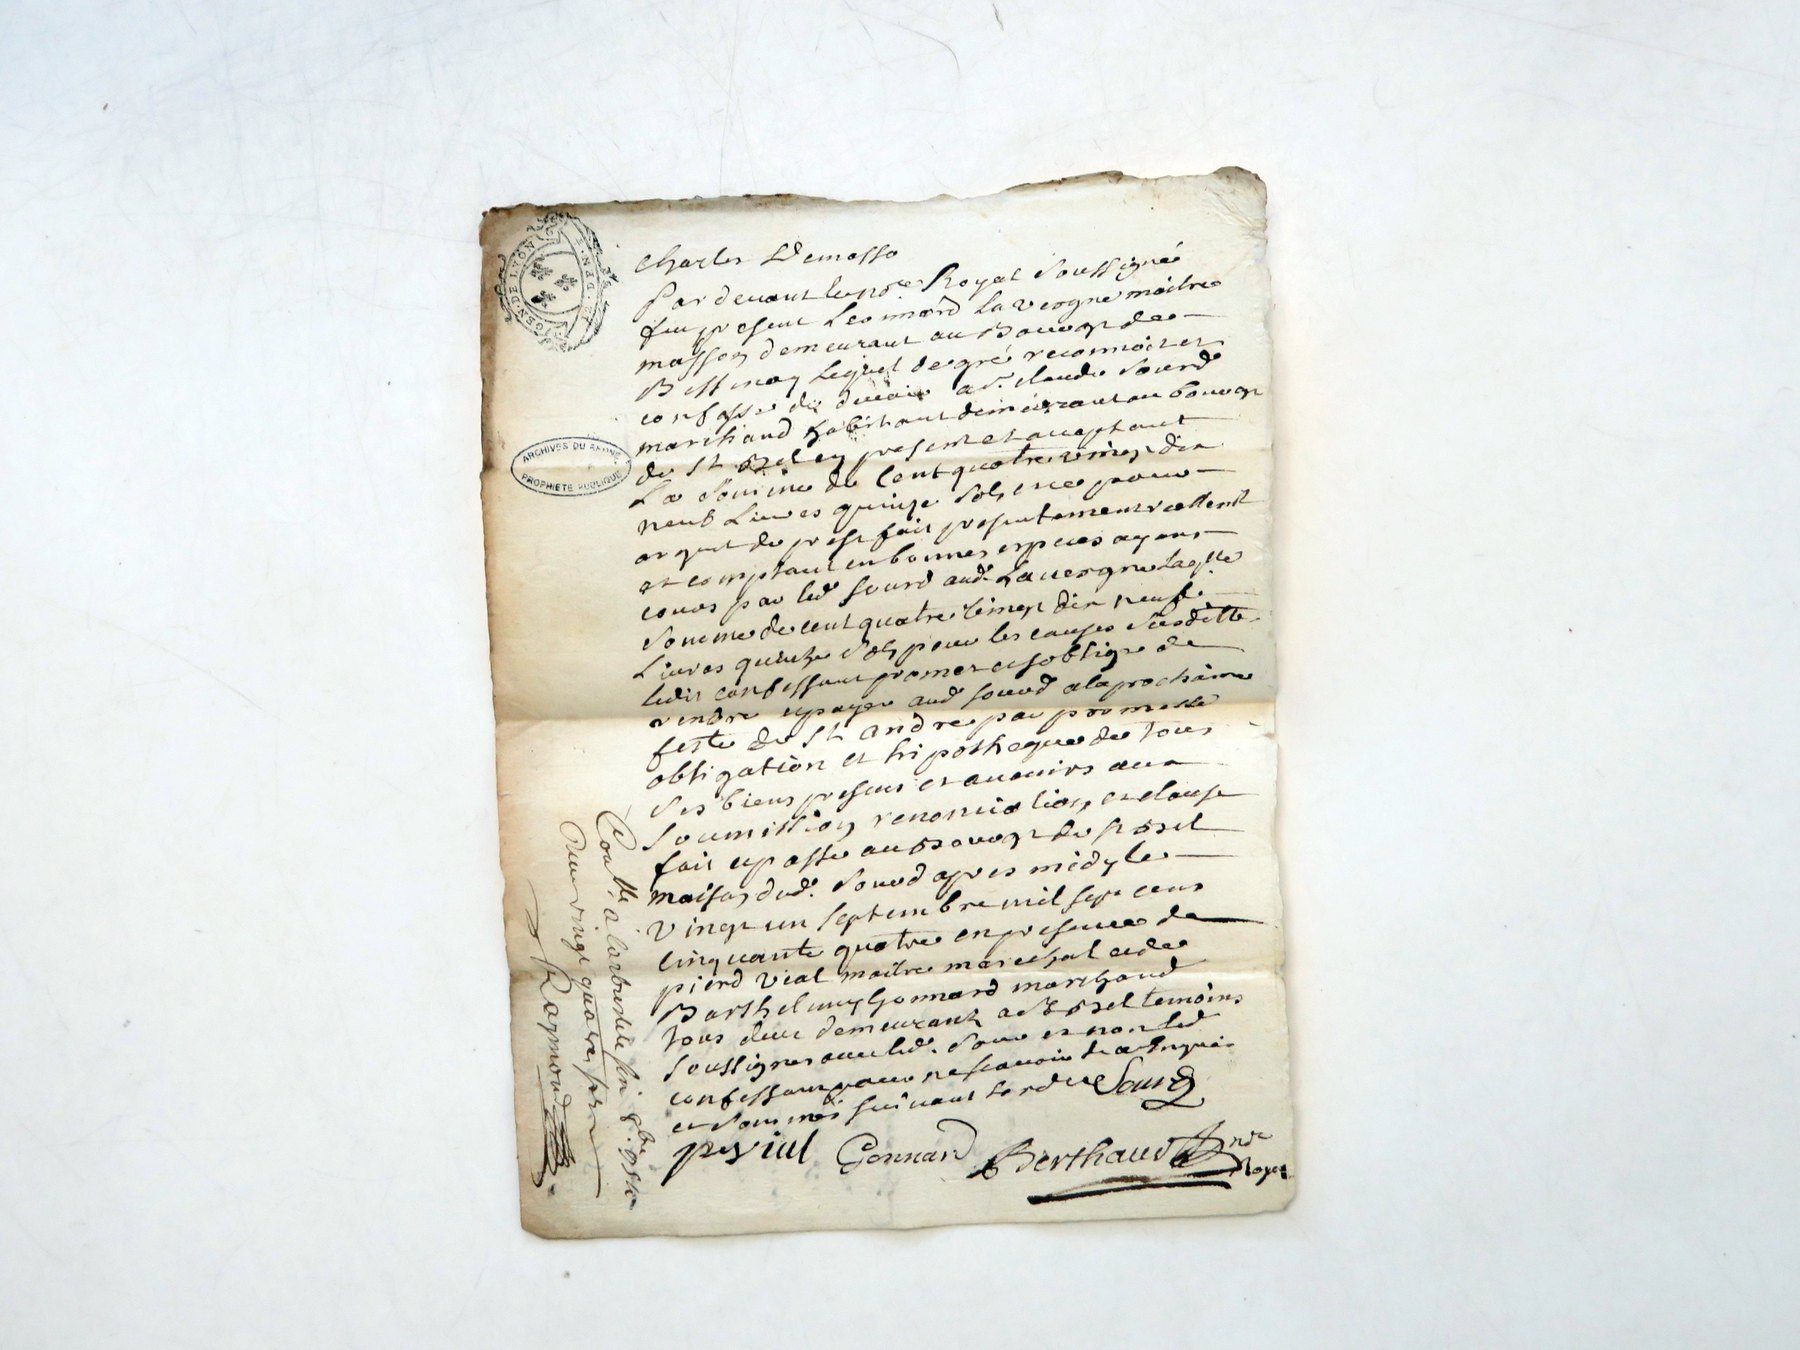 GEN. DE LYON
ARCHIVES DU RHÔNE
PROPRIÉTÉ PUBLIQUE
Charles Demasso
Pardevant le nore Royal soussigné
fut present Leonnard Lavergne maitre
masson demeurant au Bourg de
Bessenay lequel de gré reconnoit et
confesse de devoir a sr. claude Sourd
marchand habitant demeurant au bourg
de St Bel ey present et acceptant
La Somme de Cent quatre vingt dix
neuf Livres quinze sols, et ce pour
argent de prest fait presentement reellemt
et comptant en bonnes especes ayant
cours par led Sourd aud. Lavergne laqlle
Somme de cent quatre vingt dix neuf
Livres quinze sols pour les causes susditte
ledit confessant promet et s'oblige de
rendre et payer aud Sourd a la prochaine
feste de St andre par promesse
obligation et hipotheque de tous
ses biens presens et avenirs aux
soumission renonciation et clause
fait et passe au Bourg de st Bel
maison dud. Sourd apres midy le
vingt un septembre mil sept cens
cinquante quatre en presence de
pierd vial maitre marechal et de
Barthelmy Gonnard marchand
tous deux demeurants a St Bel temoins
soussignes avec led. Sour et non led
confessant pour ne scavoir de ce enquis
et sommé suivant lord ce Sourd
p vial Gonnard Berthaud nre
Royal
Contlle a larbresle le 8bre 1754
Reçu vingt quatre sols
Raymond